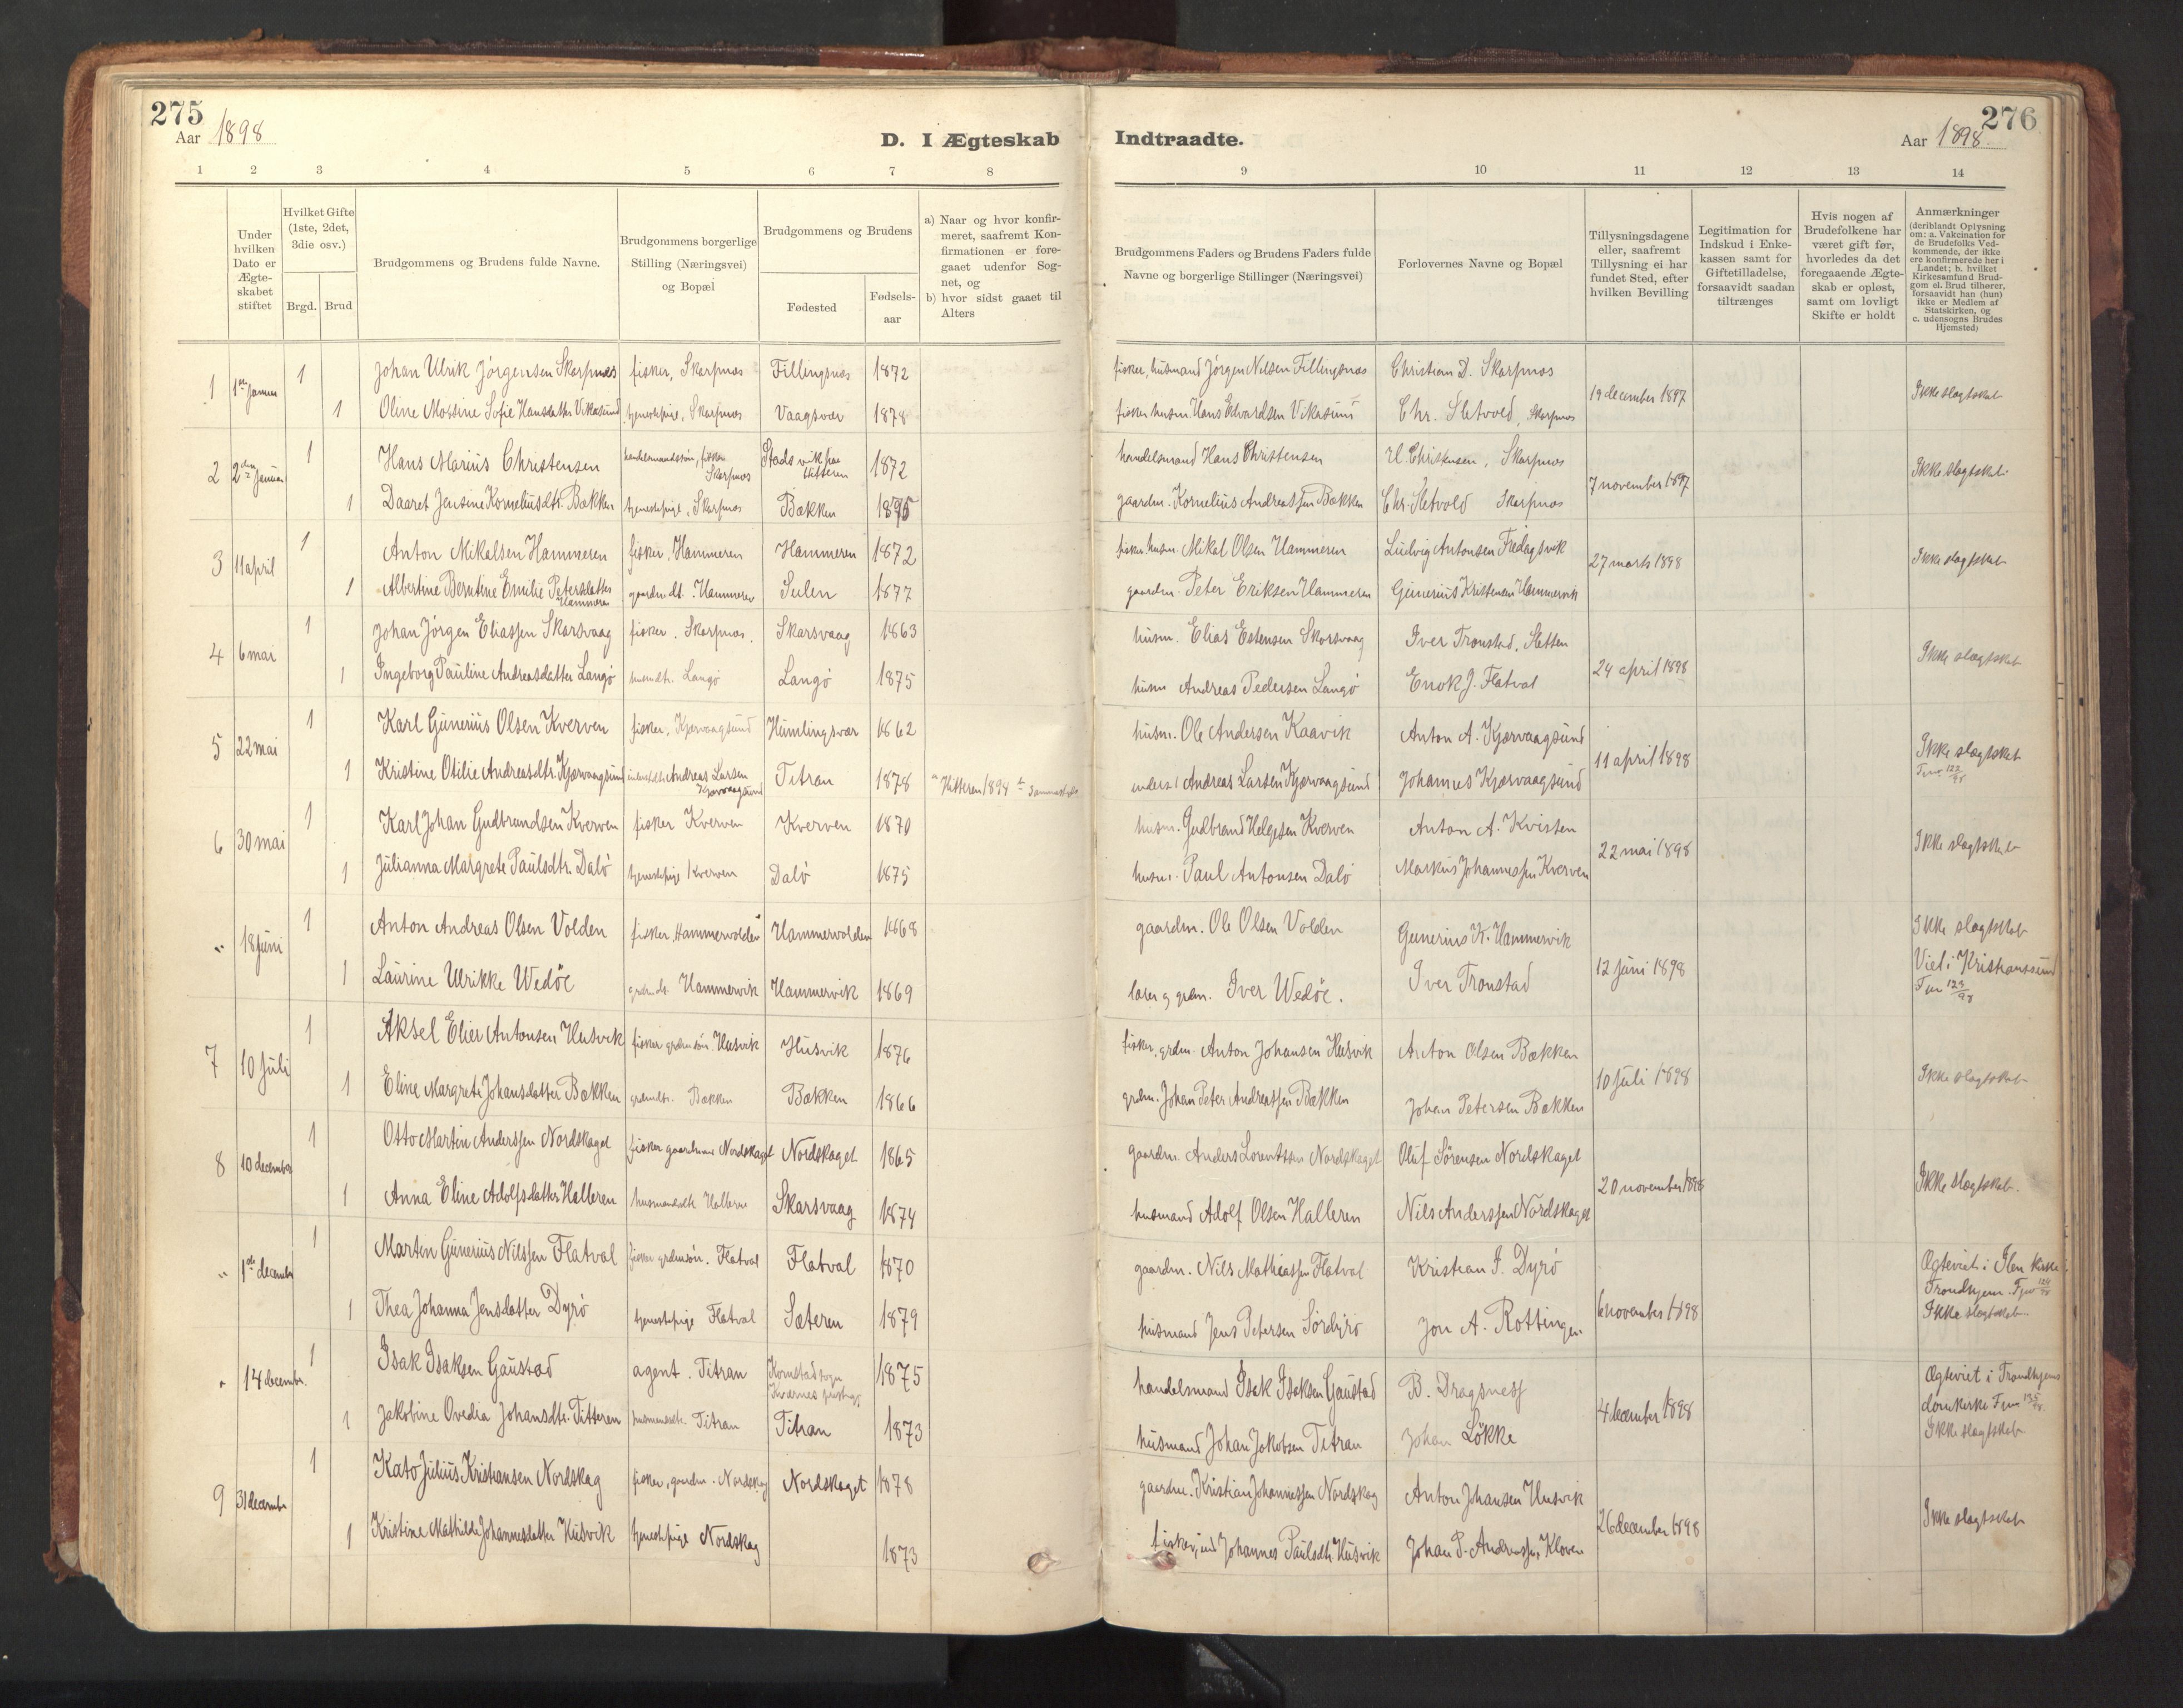 275
Aar 1898
D. I Ægteskab
Indtraadte.
276
Aar 1898.
1 2 3 4 5 6 7 8
9 10 11 12 13 14
Under hvilken Dato er Ægte-skabet stiftet
Hvilket Gifte (1ste, 2det, 3die osv.)
Brgd. Brud
Brudgommens og Brudens fulde Navne.
Brudgommens borgerlige Stilling (Næringsvei) og Bopæl
Brudgommens og Brudens
Fødested
Fødsels-aar
a) Naar og hvor konfir-meret, saafremt Kon-firmationen er fore-gaaet udenfor Sog-net, og
b) hvor sidst gaaet til Alters
Brudgommens Faders og Brudens Faders fulde Navne og borgerlige Stillinger (Næringsvei)
Forlovernes Navne og Bopæl
Tillysningsdagene eller, saafremt Tillysning ei har fundet Sted, efter hvilken Bevilling
Legitimation for Indskud i Enke-kassen samt for Giftetilladelse, forsaavidt saadan tiltrænges
Hvis nogen af Brudefolkene har været gift før, hvorledes da det foregaaende Ægte-skab er opløst, samt om lovligt Skifte er holdt
Anmærkninger (deriblandt Oplysning om: a. Vakcination for de Brudefolks Ved-kommende, der ikke ere konfirmerede her i Landet; b. hvilket Kirkesamfund Brud-gom el. Brud tilhører, forsaavidt han (hun) ikke er Medlem af Statskirken, og c. udensogns Brudes Hjemsted)
1 1 Johan Ulrik Jørgensen Skarpnæs fisker, Skarpnæs Fillingsnæs 1872 fisker, husmand Jørgen Nilsen Fillingsnæs Christian D. Skarpnæs 19 december 1897 Ikke slægtskab
1 Oline Mossine Sofie Hansdatter Vikasund tjenestepige, Skarpnæs Vaagsvær 1878 fisker husm. Hans Edvardsen Vikasund Chr. Sletvold, Skarpnæs
2 2den Januar 1 Hans Marius Christensen Skarpnæs Stadsvik paa Hitteren 1872 handelsmand Hans Christensen H. Christensen, Skarpnæs 7 november 1897 Ikke slægtskab
1 Daaret Jensine Korneliusdtr. Bækken tjenestepige, Skarpnæs Bækken gaardm. Kornelius Andreassen Bækken Chr. Sletvold Skarpnæs
3 11 april 1 Anton Mikalsen Hammeren fisker, Hammeren Hammeren 1872 fisker husm. Mikal Olsen Hammeren Ludvig Antonsen Fredagsvik 27 marts 1898 Ikke slægtskab
1 Albertine Berntine Emilie Petersdatter Hammeren gaardm.dt. Hammeren Sulen 1877 gaardm. Peter Eriksen Hammeren Gunerius Kristensen Hammervik
4 6 mai 1 Johan Jørgen Eliassen Skarsvaag fisker. Skarpnæs. Skarsvaag 1863 husm. Elias Estensen Skarsvaag Iver Tronstad, Sletten 24 april 1898 Ikke slægtskab
1 Ingeborg Pauline Andreasdatter Langø husmdtr. Langø Langø 1875 husm Andreas Pedersen Langø Enok J. Flatval
5 22 mai 1 Karl Gunerius Olsen Kverven fisker, Kjærvaagsund Humlingsvær 1862 husm. Ole Andersen Kaavik Anton A. Kjærvaagsund 11 april 1898 Ikke slægtskab
1 Kristine Otilie Andreasdtr. Kjærvaagsund Andreas Larsen Kjærvaagsund Titran 1878 a Hitteren 1894 b Sammesteds Andreas Larsen Kjærvaagsund Johannes Kjærvaagsund
6 30 mai 1 Karl Johan Gudbrandsen Kverven fisker Kverven Kverven 1870 husm. Gudbrand Helgesen Kverven Anton A. Kvisten 22 mai 1898 Ikke slægtskab
1 Julianna Margrete Paulsdtr. Dalø tjenestepige Kverven Dalø 1875 husm. Paul Antonsen Dalø Markus Johannessen Kverven
" 18 juni 1 Anton Andreas Olsen Volden fisker, Hammervolden Hammervolden 1868 gaardm. Ole Olsen Volden Gunerius K. Hammervik 12 juni 1898 Ikke slægtskab
1 Laurine Ulrikke Wedøe grdm.dt. Hammervik Hammervik 1869 lærer og grdm. Iver Wedøe. Iver Tronstad Viet i Kristianssund
7 10 juli 1 Aksel Elier Antonsen Husvik fisker grdmsøn. Husvik Husvik 1876 fisker, grdm. Anton Johansen Husvik Anton Olsen Bækken 10 juli 1898 Ikke slægtskab
1 Eline Margrete Johansdatter Bækken grdmdtr. Bækken Bækken 1866 grdm. Johan Peter Andreassen Bækken Johan Petersen Bækken
8 10 december 1 Otto Martin Anderssen Nordskaget fisker gaardmand Nordskaget Nordskaget 1865 gaardm. Anders Lorentssen Nordskaget Oluf Sørensen Nordskaget 20 november 1898 Ikke slægtskab.
1 Anna Eline Adolfsdatter Halleren husmandsdtr Halleren Skarsvaag 1874 husmand Adolf Olsen Halleren Nils Anderssen Nordskaget
" 1ste december 1 Morten Gunerius Nilssen Flatval fisker grdmsøn. Flatval Flatval 1870 gaardm. Nils Mathiassen Flatval Kristian J. Dyrø 6 november 1898 Ægteviet i Ilen kirke Trondhjem.
1 Thea Johanna Jensdatter Dyrø tjenestepige Flatval Sæteren 1879 husmand Jens Petersen Sørdyrø Jon A. Rottingen Ikke slægtskab
" 14 decembr. 1 Isak Isaksen Gaustad agent. Titran Kornstad sogn Kværnes 1875 handelsmand Isak Isaksen Gaustad B. Dragsness 4 december 1898 Ægteviet i Trondhjems domkirke
1 Jakobine Ovedia Johansdtr. Titteren husmandsdtr. Titran Titran 1873 husmand Johan Jakobsen Titran Johan Løkke Ikke slægtskab
9 31 december 1 Kato Julius Kristiansen Nordskag fisker, gaardm. Nordskag Nordskaget 1878 gaardm. Kristian Johannessen Nordskag Anton Johansen Husvik 26 december 1898 Ikke slægtskab
1 Kristine Mathilde Johannesdatter Husvik tjenestepige Nordskag 1873 fisker, ind Johannes Paulsdtr. Husvik Johan P. Andreassen Kloven